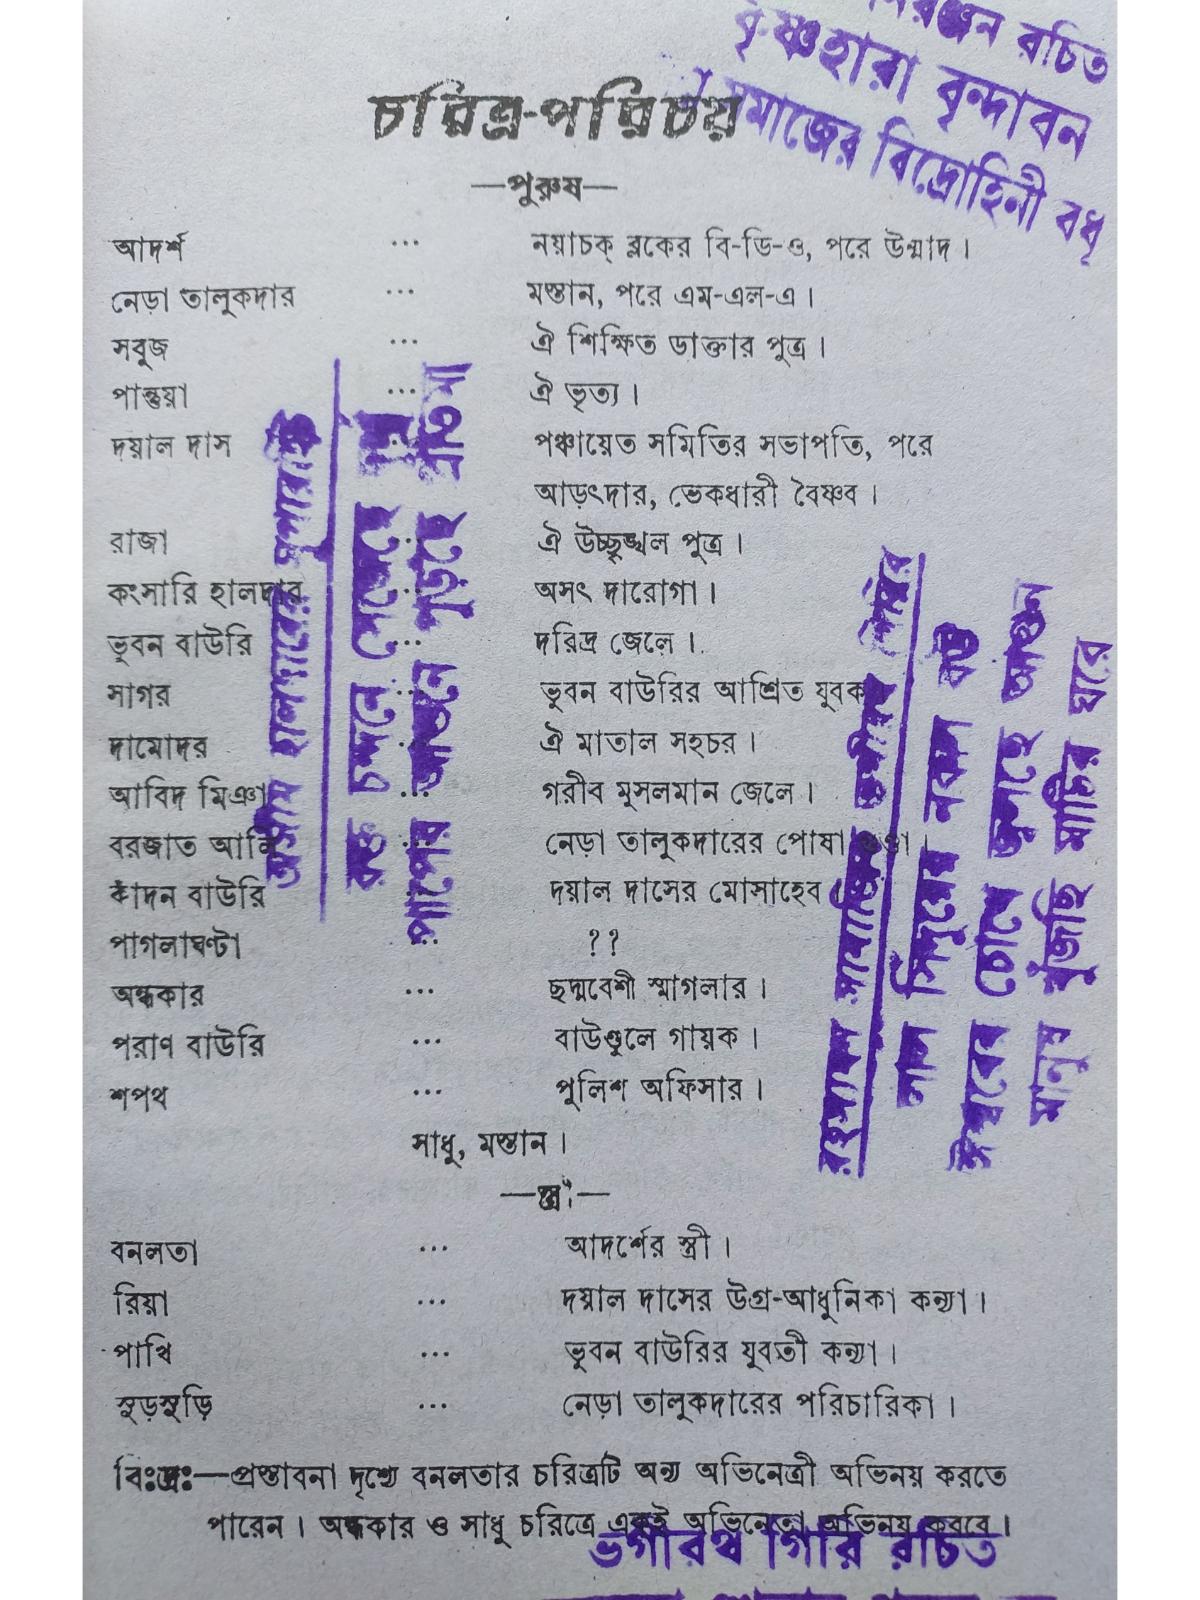 রঞ্জন রচিত
কৃষ্ণহারা বৃন্দাবন
সমাজের বিদ্রোহিনী বধূ
চরিত্র-পরিচয়
—পুরুষ—
আদর্শ ... নয়াচক্ ব্লকের বি-ডি-ও, পরে উন্মাদ।
নেড়া তালুকদার ... মস্তান, পরে এম-এল-এ।
সবুজ ... ঐ শিক্ষিত ডাক্তার পুত্র।
পান্তুয়া ... ঐ ভৃত্য।
দয়াল দাস পঞ্চায়েত সমিতির সভাপতি, পরে
আড়ৎদার, ভেকধারী বৈষ্ণব।
রাজা ... ঐ উচ্ছৃঙ্খল পুত্র।
কংসারি হালদার ... অসৎ দারোগা।
ভুবন বাউরি ... দরিদ্র জেলে।
সাগর ... ভুবন বাউরির আশ্রিত যুবক
দামোদর ... ঐ মাতাল সহচর।
আবিদ মিঞা ... গরীব মুসলমান জেলে।
বরজাত আলি ... নেড়া তালুকদারের পোষা গুণ্ডা।
কাঁদন বাউরি দয়াল দাসের মোসাহেব
পাগলাঘণ্টা ... ??
অন্ধকার ... ছদ্মবেশী স্মাগলার।
পরাণ বাউরি ... বাউণ্ডুলে গায়ক।
শপথ ... পুলিশ অফিসার।
সাধু, মস্তান।
—স্ত্রী—
বনলতা ... আদর্শের স্ত্রী।
রিয়া ... দয়াল দাসের উগ্র-আধুনিকা কন্যা।
পাখি ... ভুবন বাউরির যুবতী কন্যা।
সুড়সুড়ি ... নেড়া তালুকদারের পরিচারিকা।
বিঃদ্রঃ—প্রস্তাবনা দৃশ্যে বনলতার চরিত্রটি অন্য অভিনেত্রী অভিনয় করতে
পারেন। অন্ধকার ও সাধু চরিত্রে একই অভিনেতা অভিনয় করবে।
ভগীরথ গিরি রচিত
অসীম হালদারের সুপারহিট
রক্ত চন্দনে সেজেছে
পাপের আগুনে পুড়ছে
লাল সিঁদুরের নকল বউ
ঈশ্বরের চোখে জ্বলছে আগুন
মানুষ খুঁজছি মাটির ঘরে